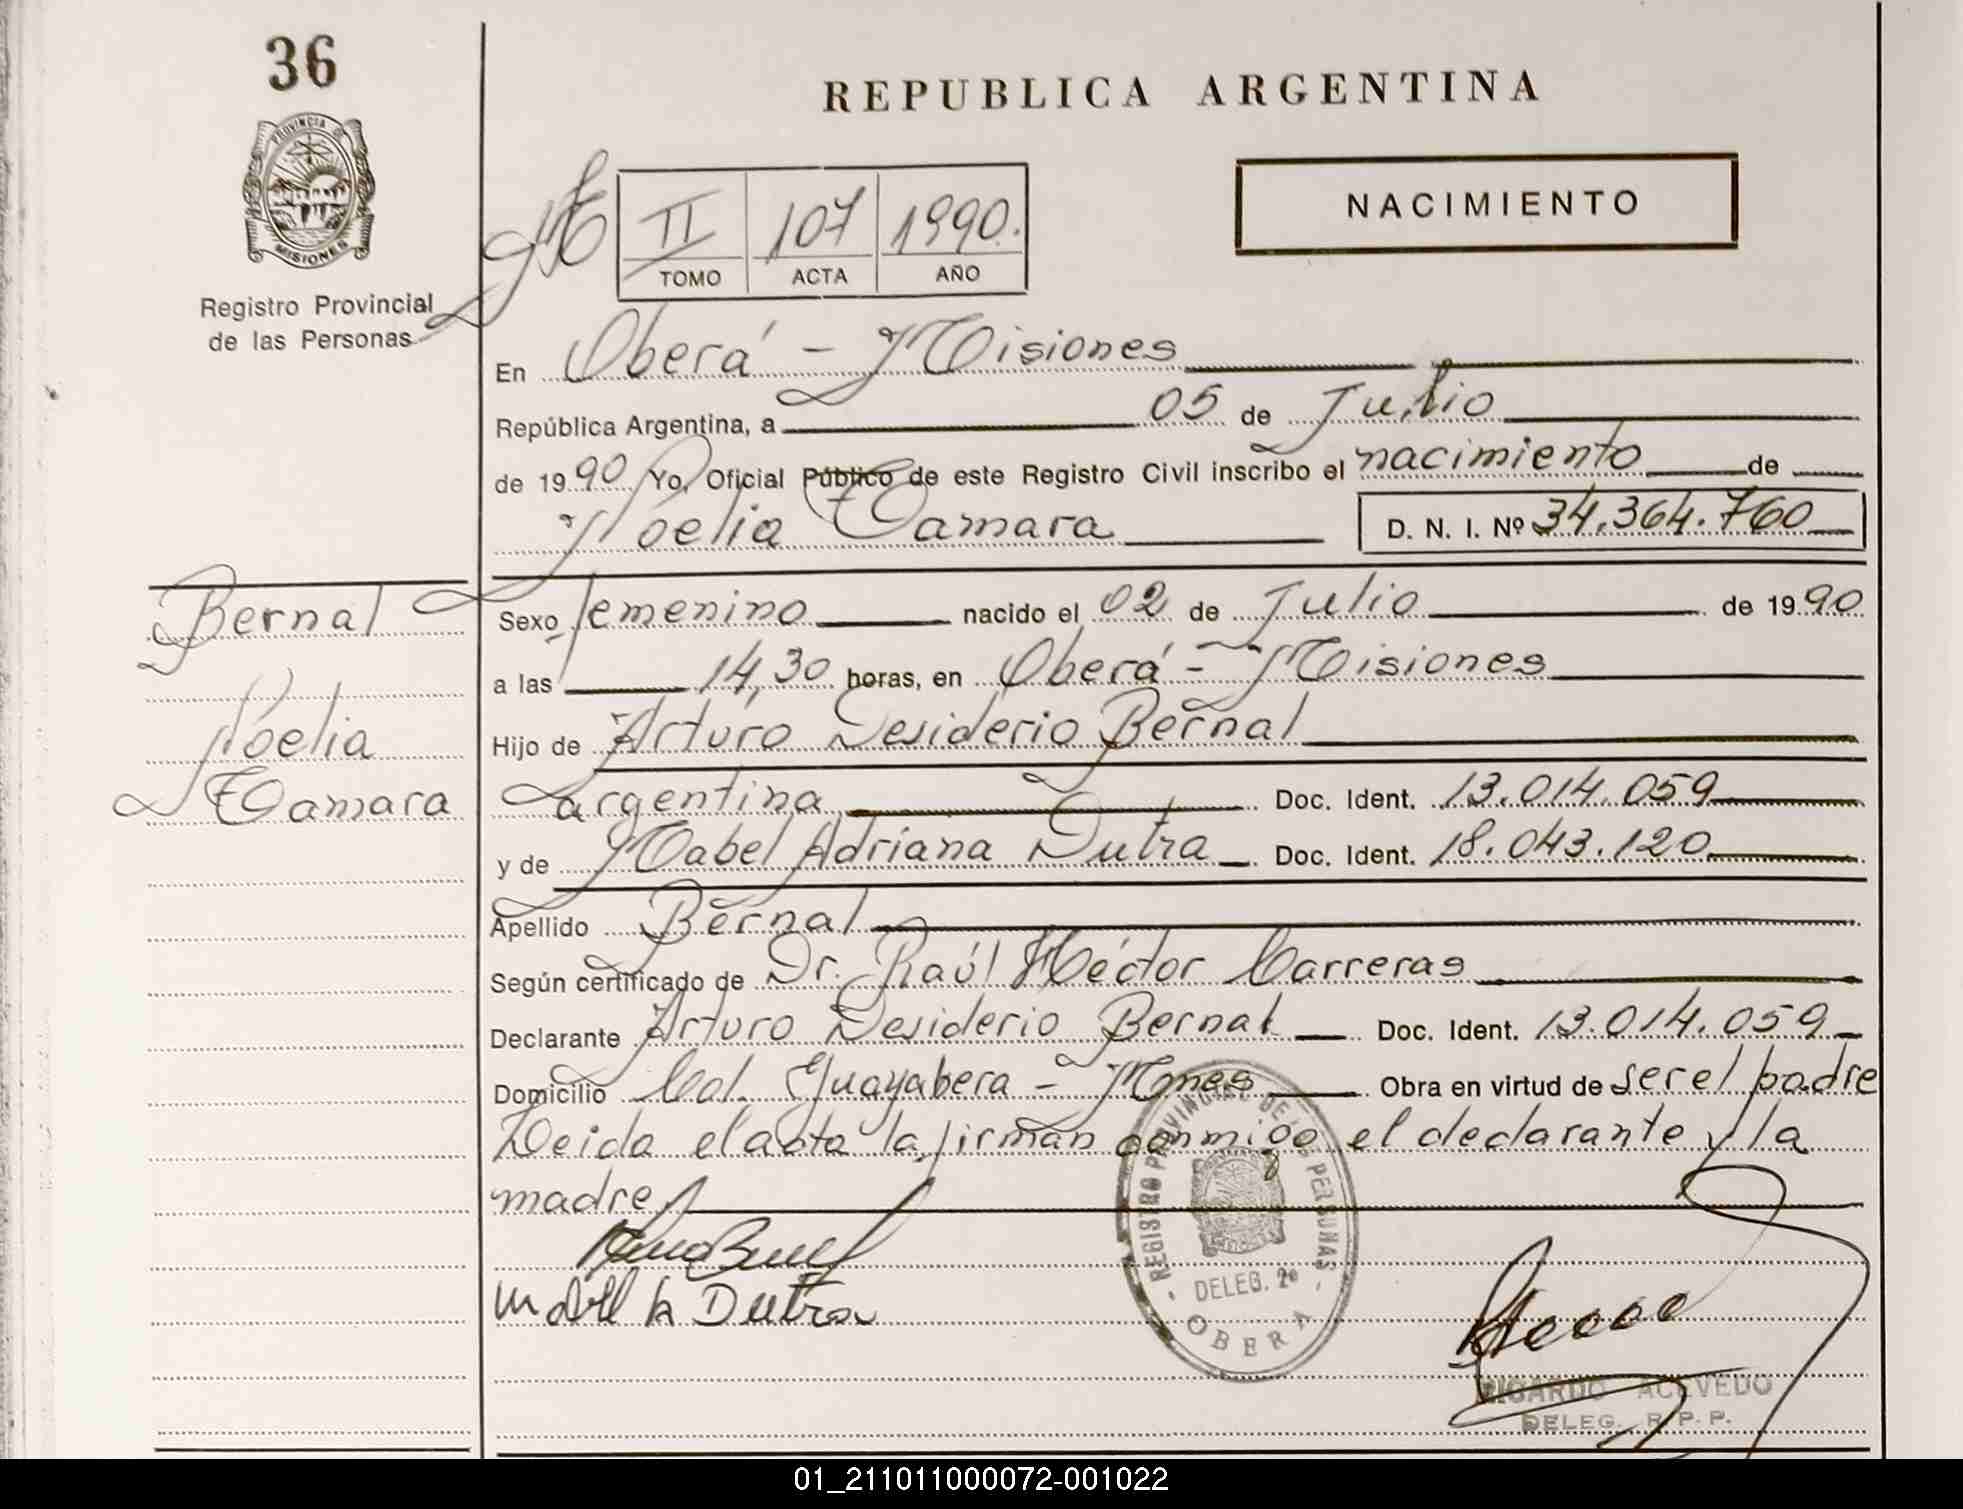 36
PROVINCIA DE
MISIONES
Registro Provincial
de las Personas
REPUBLICA ARGENTINA
NACIMIENTO
II 107 1990.
TOMO ACTA AÑO
En Oberá - Misiones
República Argentina, a 05 de Julio
de 1990 Yo, Oficial Público de este Registro Civil inscribo el nacimiento de
Noelia Tamara D. N. I. Nº 34.364.760
Bernal
Noelia
Tamara
Sexo femenino nacido el 02 de Julio de 1990
a las 14,30 horas, en Oberá - Misiones
Hijo de Arturo Desiderio Bernal
argentina Doc. Ident. 13.014.059
y de Mabel Adriana Dutra Doc. Ident. 18.043.120
Apellido Bernal
Según certificado de Dr. Raúl Héctor Carreras
Declarante Arturo Desiderio Bernal Doc. Ident. 13.014.059
Domicilio Col. Guayabera - Mnes Obra en virtud de ser el padre
Leida el acta la firman conmigo el declarante y la
madre
Mabel A Dutra
REGISTRO PROVINCIAL DE LAS PERSONAS
DELEG. 2º
OBERA
RICARDO ACEVEDO
DELEG. R. P. P.
01_211011000072-001022